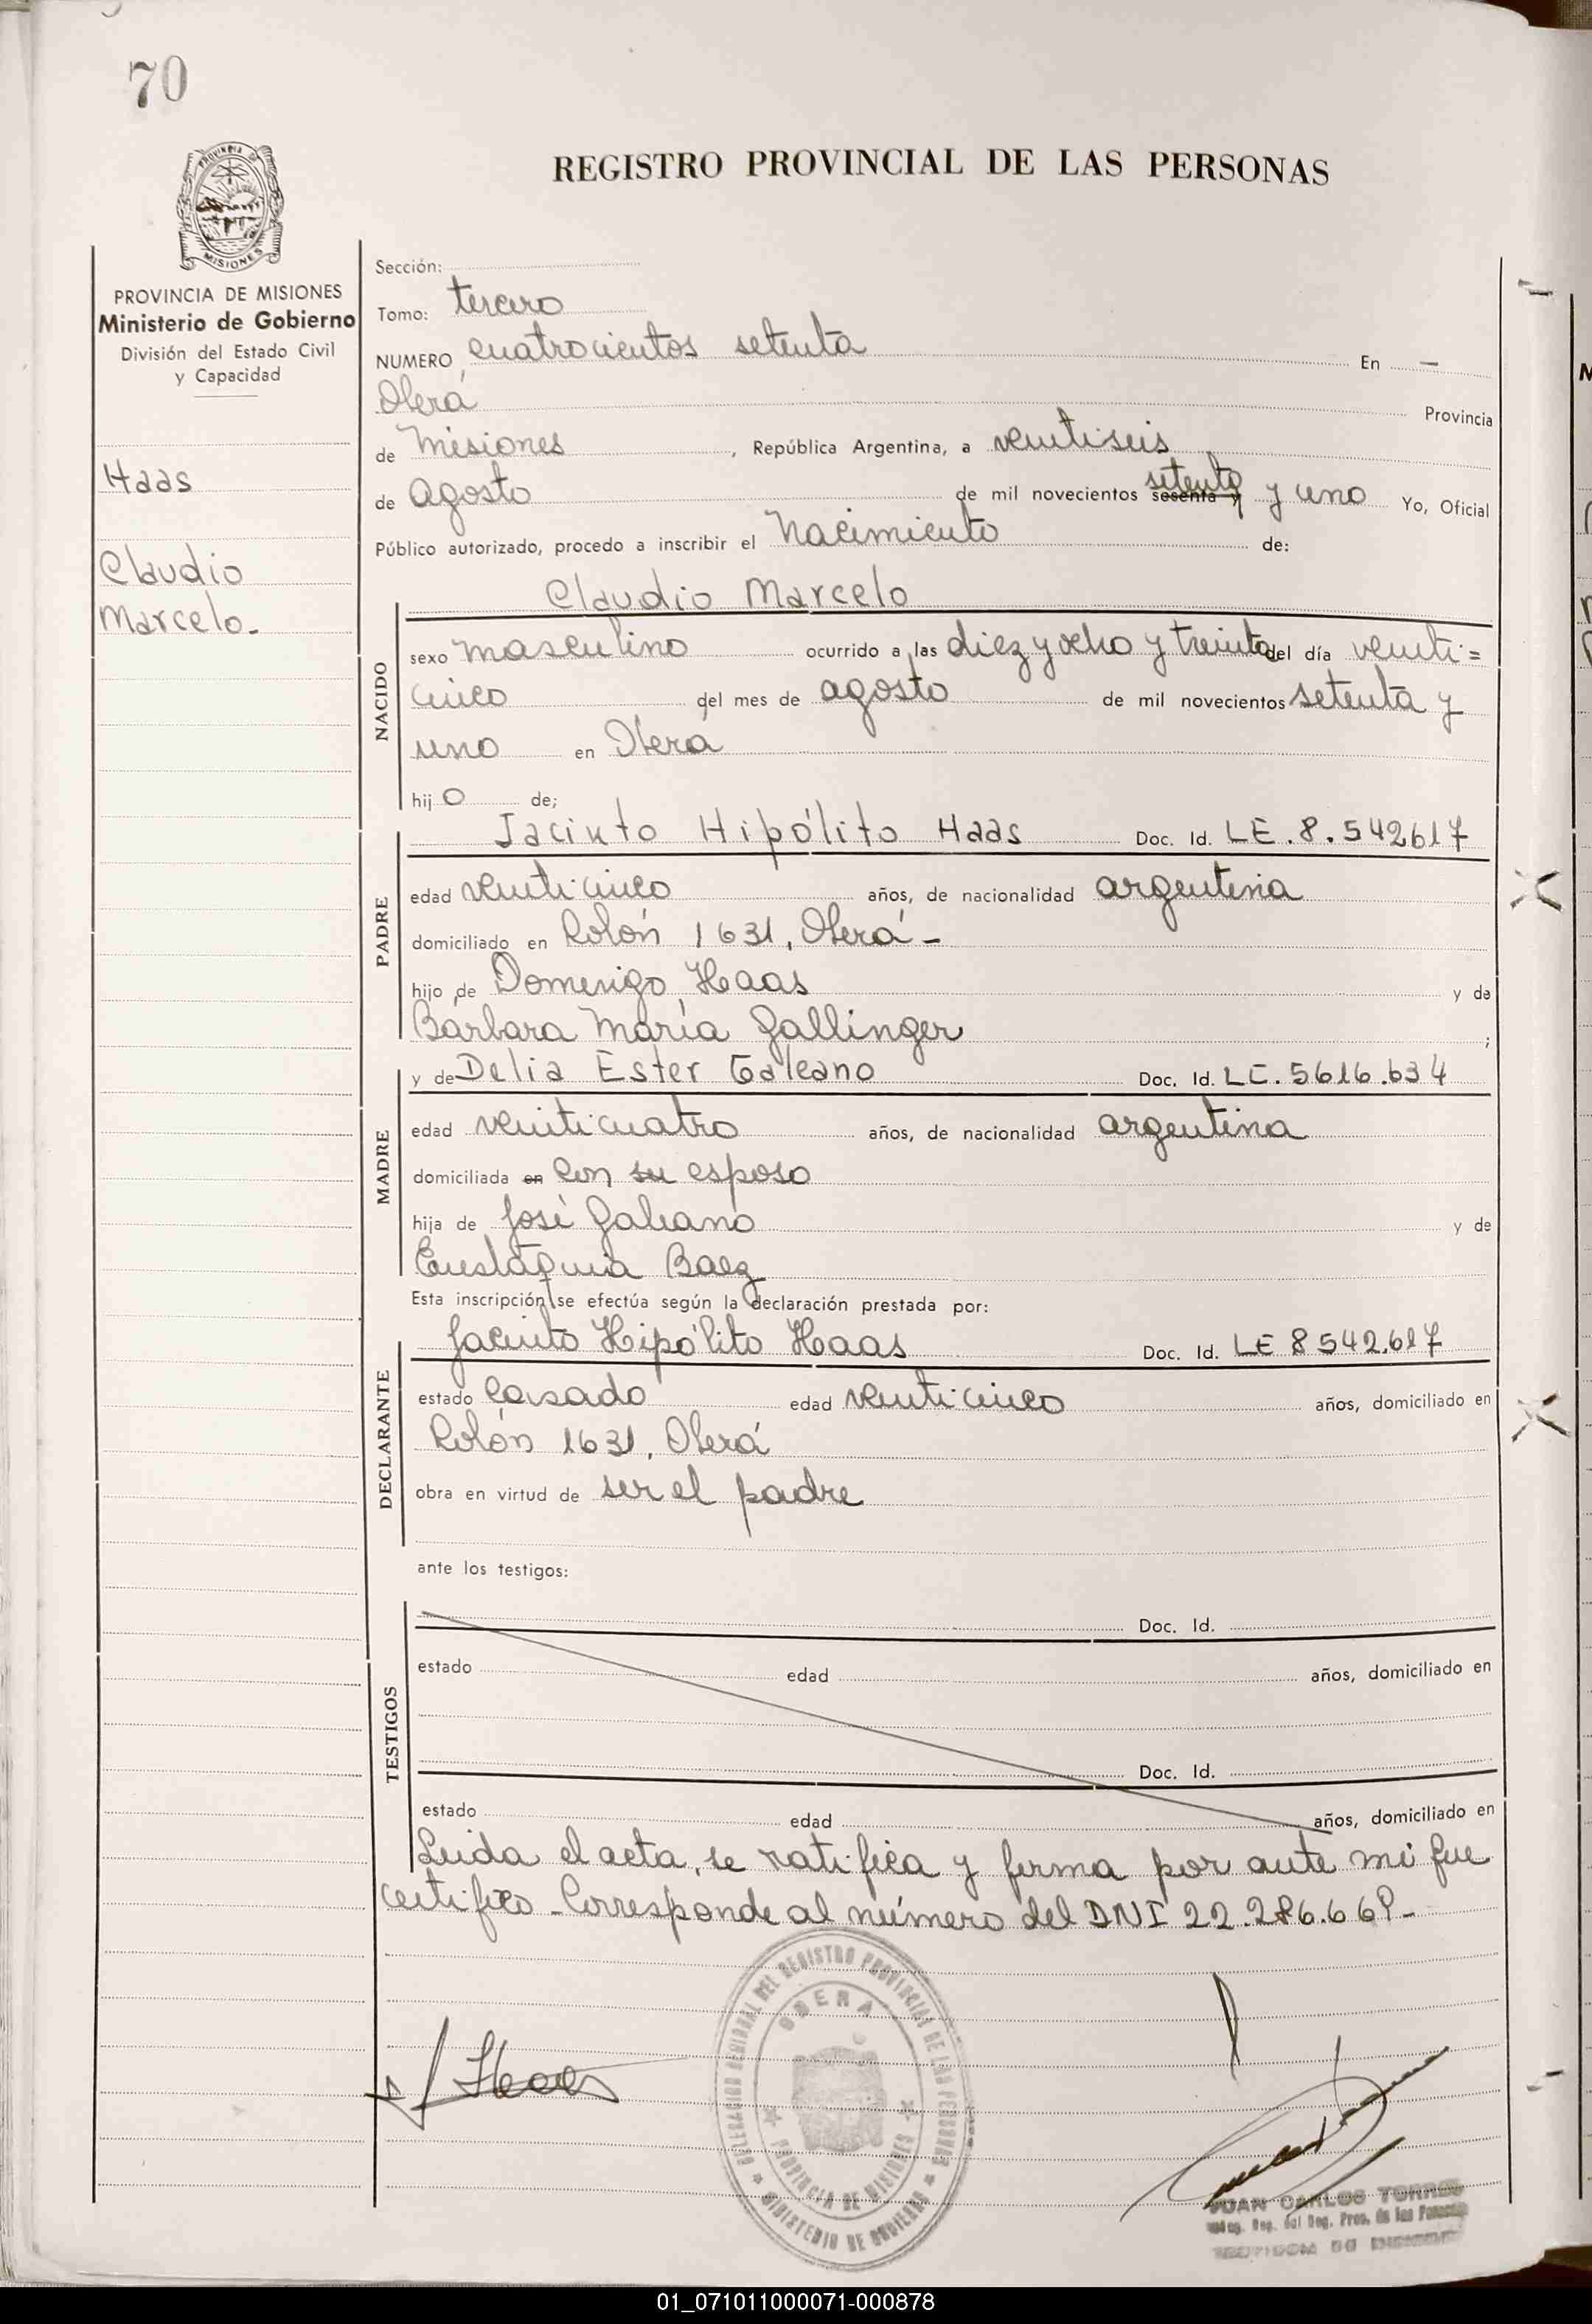 70
REGISTRO PROVINCIAL DE LAS PERSONAS
PROVINCIA
MISIONES
PROVINCIA DE MISIONES
Ministerio de Gobierno
División del Estado Civil
y Capacidad
Haas
Claudio
Marcelo.
Sección:
Tomo: tercero
NUMERO cuatrocientos setenta En —
Oberá Provincia
de Misiones, República Argentina, a veintiseis
de agosto de mil novecientos sesenta y setenta y uno Yo, Oficial
Público autorizado, procedo a inscribir el Nacimiento de:
NACIDO
Claudio Marcelo
sexo masculino ocurrido a las diez y ocho y treinta del día veinti=
cinco del mes de agosto de mil novecientos setenta y
uno en Oberá
hijo de;
PADRE
Jacinto Hipólito Haas Doc. Id. LE. 8.542617
edad veinticinco años, de nacionalidad argentina
domiciliado en Colón 1631, Oberá -
hijo de Domingo Haas y de
Barbara María Gallinger ;
MADRE
y de Delia Ester Galeano Doc. Id. LC. 5616.634
edad veinticuatro años, de nacionalidad argentina
domiciliada en con su esposo
hija de José Galeano y de
Eustaquia Baez
Esta inscripción se efectúa según la declaración prestada por:
DECLARANTE
Jacinto Hipólito Haas Doc. Id. LE 8542.617
estado casado edad veinticinco años, domiciliado en
Colón 1631, Oberá
obra en virtud de ser el padre
ante los testigos:
TESTIGOS
Doc. Id.
estado edad años, domiciliado en
Doc. Id.
estado edad años, domiciliado en
Leida el acta, se ratifica y firma por ante mi que
certifico - Corresponde al número del DNI 22.286.669-
Haas
DELEGACION REGIONAL DEL REGISTRO PROVINCIAL DE LAS PERSONAS
OBERA
PROVINCIA DE MISIONES
MINISTERIO DE GOBIERNO
JUAN CARLOS TORRES
Reg. del Reg. Prov. de las Personas
01_071011000071-000878